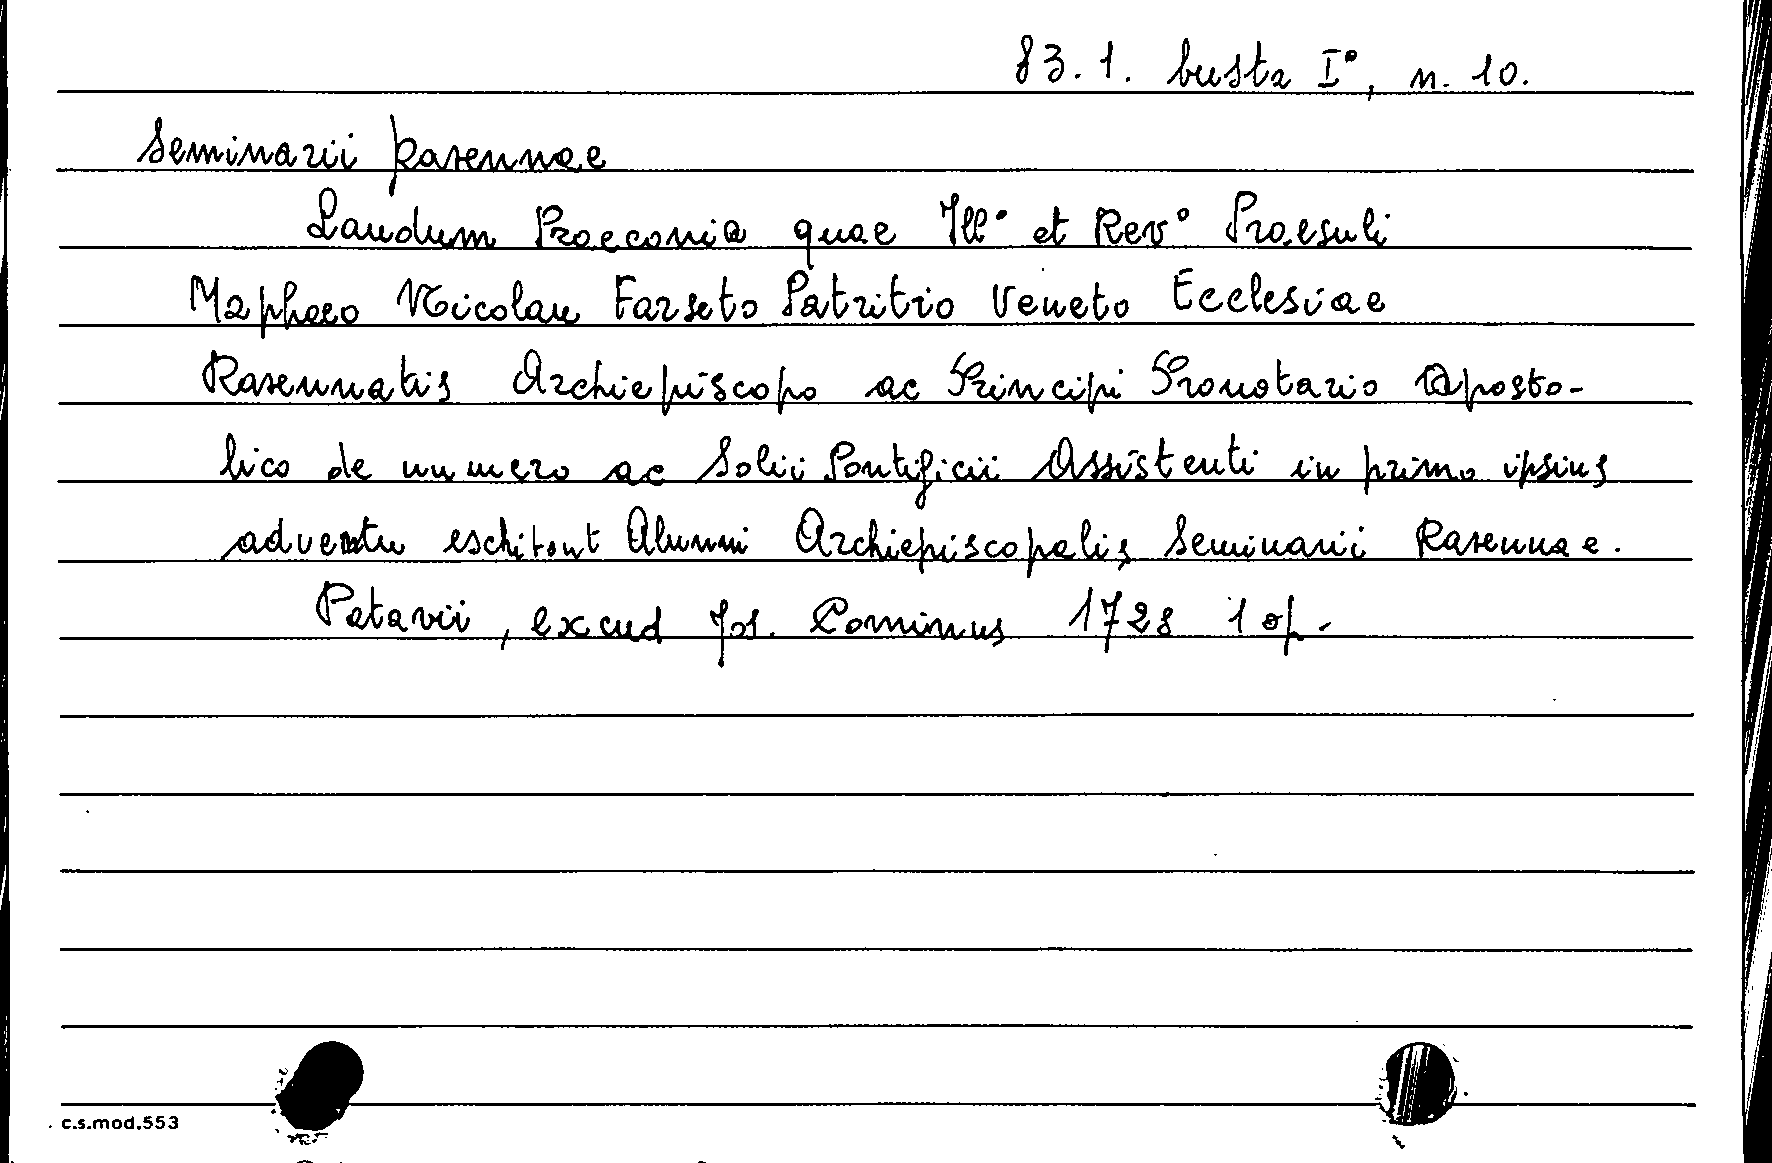 83.1. busta I°, n. 10.
Seminarii Ravennae
Laudum Praeconia quae Ill° et Rev° Praesuli
Maphaeo Nicolau Farseto Patritio Veneto Ecclesiae
Ravennatis Archiepiscopo ac Principi Pronotario Aposto-
lico de numero ac Solii Pontificii Assistenti in primo ipsius
adventu Alumni Archiepiscopalis Seminarii Ravennae.
Patavii, excud Jos. Cominus 1728 1 op.
c.s.mod.553